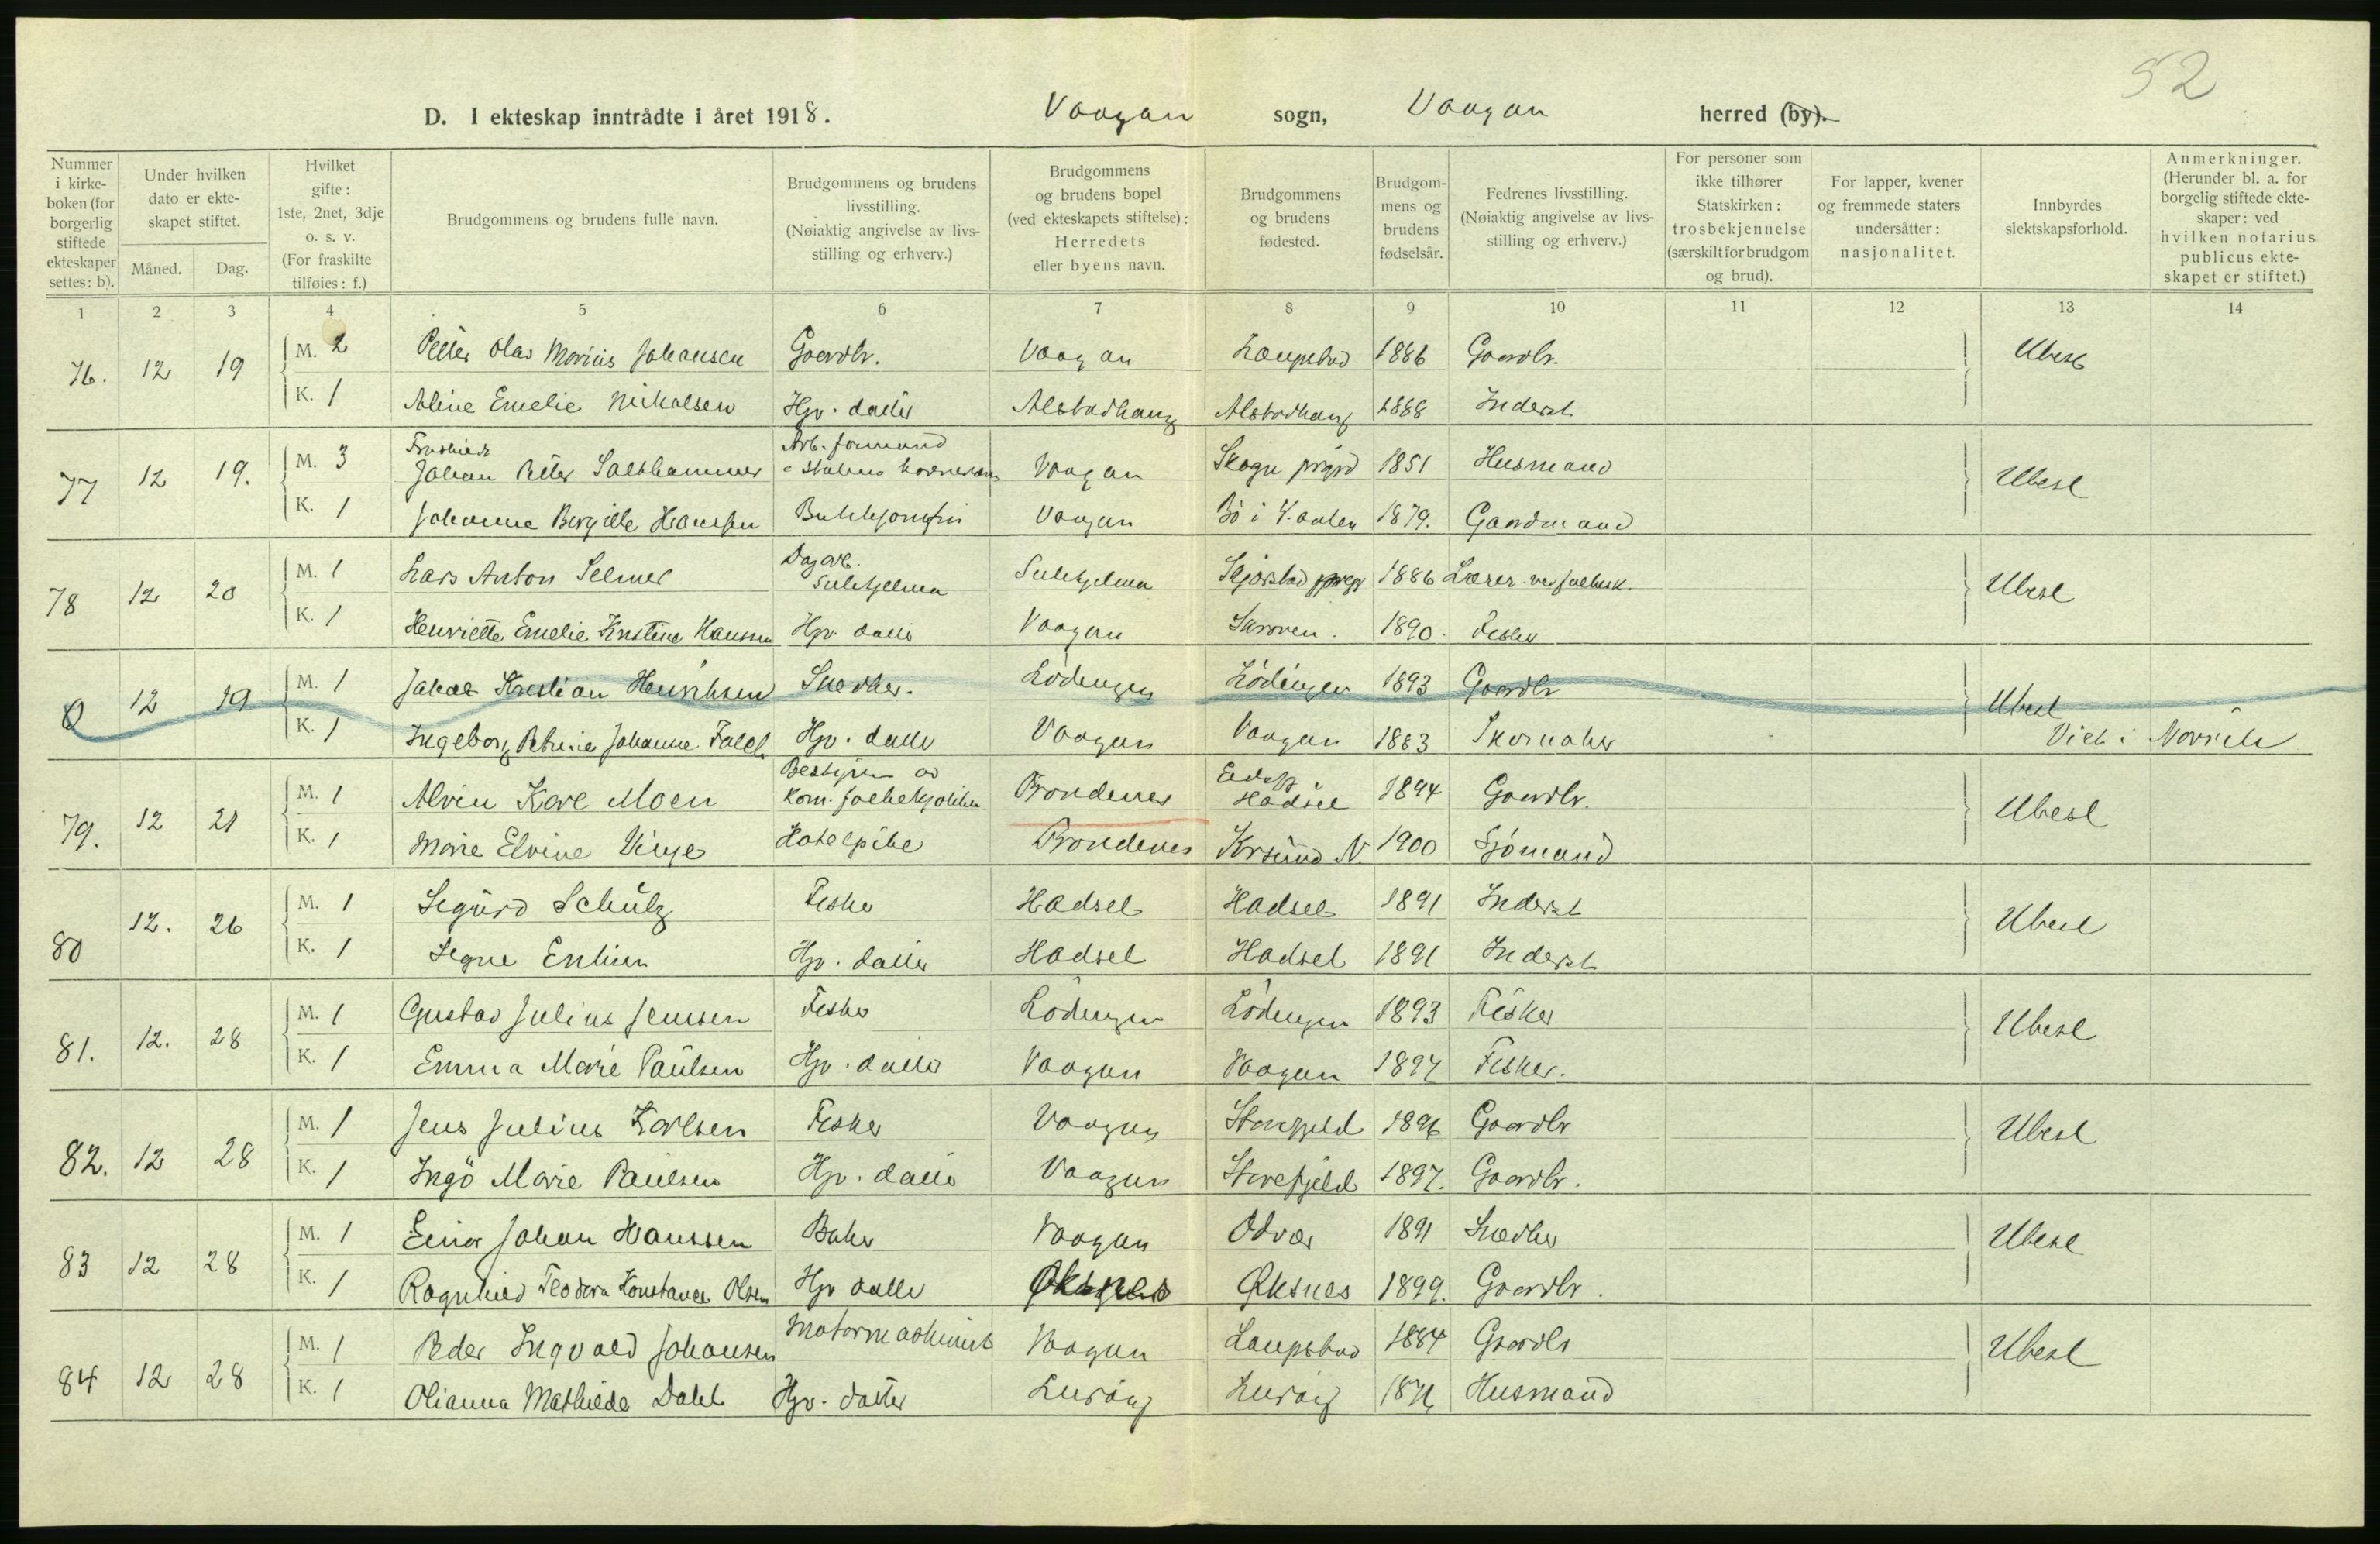 52
D. I ekteskap inntrådte i året 1918. Vaagan sogn, Vaagan herred (by).
Nummer i kirke-boken (for borgerlig stiftede ekteskaper settes: b).
Under hvilken dato er ekte-skapet stiftet.
Måned. Dag.
Hvilket gifte: 1ste, 2net, 3dje o. s. v. (For fraskilte tilføies: f.)
Brudgommens og brudens fulle navn.
Brudgommens og brudens livsstilling. (Nøiaktig angivelse av livs-stilling og erhverv.)
Brudgommens og brudens bopel (ved ekteskapets stiftelse): Herredets eller byens navn.
Brudgommens og brudens fødested.
Brudgom-mens og brudens fødselsår.
Fedrenes livsstilling. (Nøiaktig angivelse av livs-stilling og erhverv.)
For personer som ikke tilhører Statskirken: trosbekjennelse (særskilt for brudgom og brud).
For lapper, kvener og fremmede staters undersåtter: nasjonalitet.
Innbyrdes slektskapsforhold.
Anmerkninger. (Herunder bl. a. for borgelig stiftede ekte-skaper: ved hvilken notarius publicus ekte-skapet er stiftet.)
1 2 3 4 5 6 7 8 9 10 11 12 13 14
76. 12 19 M. 2 Peder Olas Marius Johansen Gaardbr. Vaagan Laupstad 1886 Gaardbr. Ubesl
K. 1 Aline Emelie Mikalsen Hjv. datter Alstadhaug Alstadhaug 1888 Inderst
77 12 19. M. 3 Fraskilt Johan Peter Salthammer Arb. formand Vaagan Skogn prgjd 1851 Husmand Ubesl
K. 1 Johanne Bergitte Hanssen Butikjomfru Vaagan Bö i V.aalen 1879. Gaardmand
78 12 20 M. 1 Lars Anton Selmer Dagarb. Sulitjelma Sulitjelma Skjerstad prgj 1886 Lærer ved folkesk. Ubesl
K. 1 Henriette Emelie Kristine Hansen Hjv. datter Vaagan Skroven. 1890. Fisker
0 12 19 M. 1 Jakob Kristian Henriksen Snedker. Lödingen Lödingen 1893 Gaardbr Ubesl
K. 1 Ingeborg Petrine Johanne Falch Hjv. datter Vaagan Vaagan 1883 Skomaker Viet i Narvik
79. 12 21 M. 1 Alvin Kare Moen Bestyrer av kom. folkekjökken Trondenes Eidsfj. Hadsel 1894 Gaardbr. Ubesl
K. 1 Marie Elvine Vinje Hotelpike Trondenes Krsund N. 1900 Sjömand
80 12. 26 M. 1 Sigurd Schulz Fisker Hadsel Hadsel 1891 Inderst Ubesl
K. 1 Signe Eriksen Hjv. datter Hadsel Hadsel 1891 Inderst
81. 12. 28 M. 1 Gustav Julius Jensen Fisker Lödingen Lödingen 1893 Fisker Ubesl
K. 1 Emma Marie Paulsen Hjv. datter Vaagan Vaagan 1894 Fisker.
82. 12 28 M. 1 Jens Julius Karlsen Fisker Vaagan Storfjeld 1896 Gaardbr Ubesl
K. 1 Ingö Marie Paulsen Hjv. datter Vaagan Storefjeld 1897. Gaardbr.
83 12 28 M. 1 Einar Johan Hanssen Baker Vaagan Odvær 1891 Snedker Ubesl
K. 1 Ragnhild Teodora Konstance Olsen Hjv datter Øksnes Øksnes 1899. Gaardbr.
84 12 28 M. 1 Peder Ingvald Johansen Motormaskinist Vaagan Laupstad 1884 Gaardbr Ubesl
K. 1 Olianna Mathilde Dahl Hjv. datter Luröy Luröy 1876 Husmand